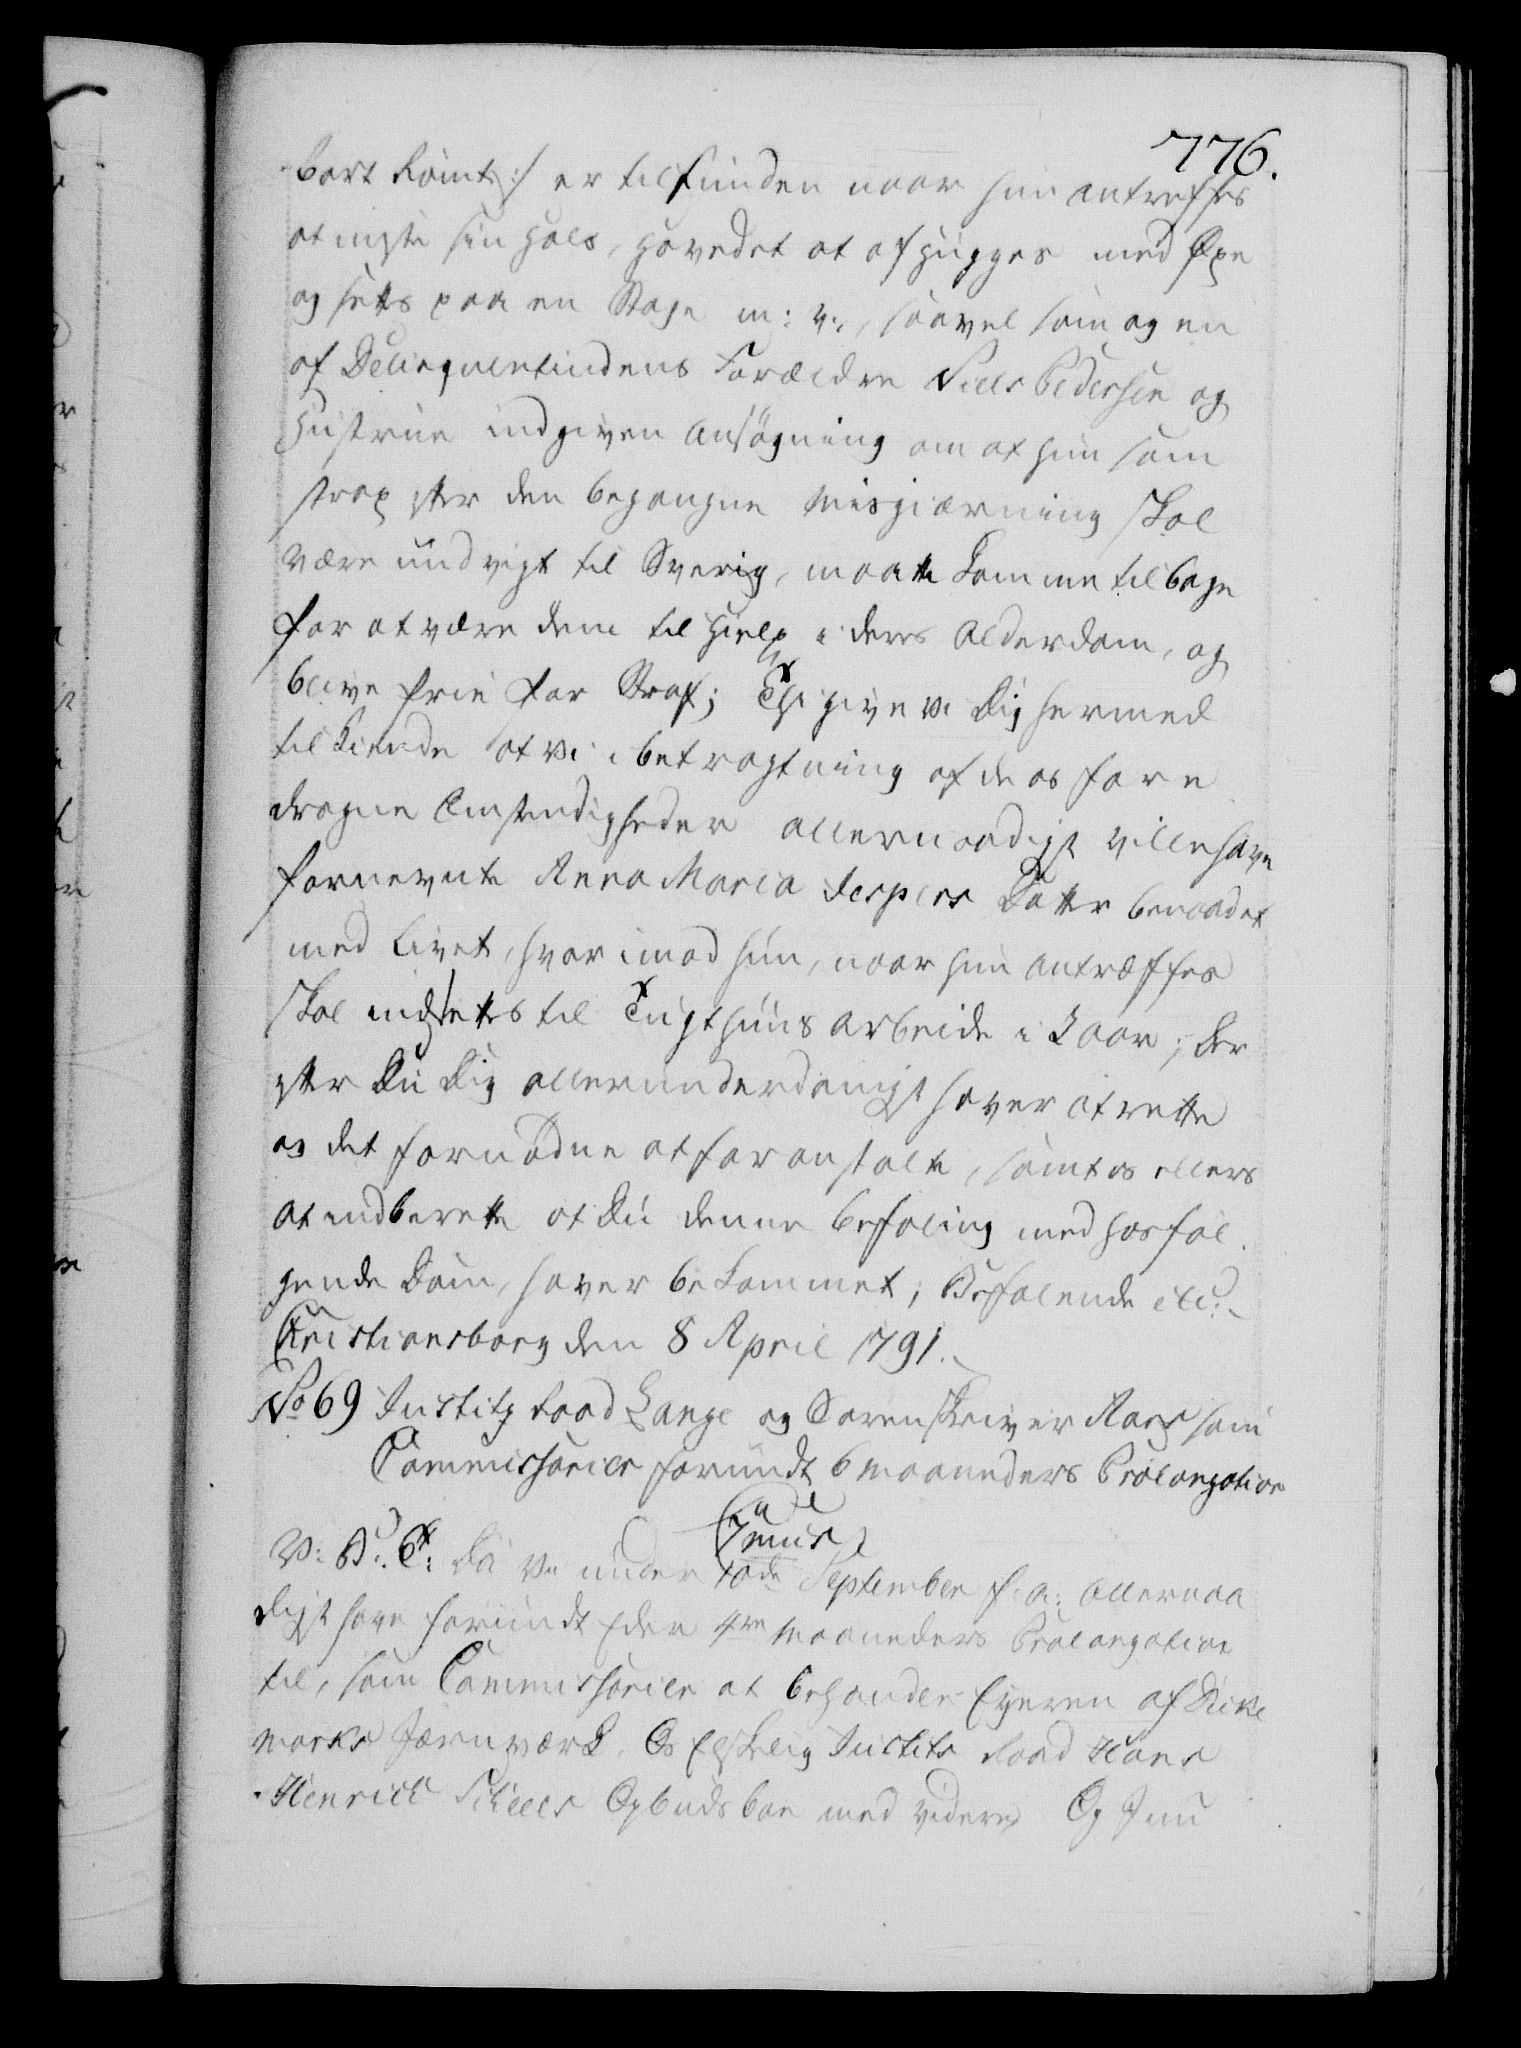 776.
bort rømt :/ er tilfunden naar hun antreffes
at miste sin Hals, Hovedet at afhugges med Øxe
og settes paa en Stage m: v:, saavel som og en
af Delinquentindens Forældre Niels Pedersen og
Hustrue indgiven Ansøgning om at hun som
strax efter den begangne Misgierning skal
være undvigt til Sverig, maatte komme tilbage
for at være dem til Hielp i deres Alderdom, og
blive frie for Straf; Thi give vi Dig hermed
tilkiende at vi i betragtning af de os fore
dragne Omstendigheder allernaadigst ville have
fornevnte Anna Maria Jespers Datter benaadet
med Livet, hvorimod hun, naar hun antræffes
skal indsettes til Tugthuus arbeide i 2 Aar; Der
efter Du Dig allerunderdanigst haver at rette
og det fornødne at foranstalte, samt os ellers
at indberette at Du denne befaling med hosføl
gende Dom, haver bekommet; Befalende etc:
Christiansborg den 8 April 1791.
No 69 Justitz Raad Lange og Sorenskriver Aars som
Commissarier forundt 6 Maaneders Prolongation
C 7mus
V: B: T: Da Vi under 10de September f: a: allernaa
digst have forundt Eder 4re Maaneders Prolongation
til, som Commissarier at behandle Eyeren af Dike
marks Jernværk, Os Elskelig Justits Raad Hans
Henrich Scheels Opbuds boe med videre, Og I nu